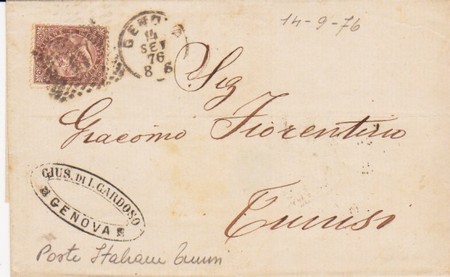 14-9-76
GENOVA
14
SET
76
8 S
Sig
Giacomo Fiorentino
Tunisi
GIUS. DI I. CARDOSO
GENOVA
Poste Italiane Tunisi